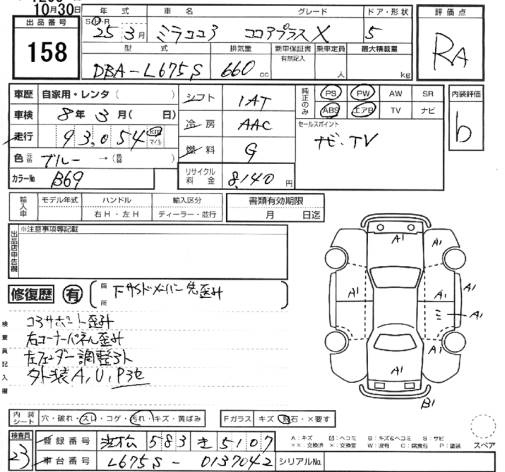 10月30日
出品番号 年式 車名 グレード ドア・形状 評価点
158 25年3月 ミラココア ココアプラスX 5 RA
型式 排気量 新車保証書 有無記入 乗車定員 最大積載量
DBA-L675S 660cc 人 kg
車歴 自家用・レンタ( ) シフト 1AT 純正のみ PS PW AW SR 内装評価
車検 8年3月(日) ABS エアB TV ナビ b
走行 93,054 冷房 AAC セールスポイント
色 元色 ブルー→(色替) 燃料 G ナビ・TV
カラーNo B69 リサイクル料金 8,140円
輸入車 モデル年式 ハンドル 輸入区分 書類有効期限
右H・左H ディーラー・並行 月 日迄
出品店申告欄 ※注意事項等記載
修復歴 有 箇所 下サイドメンバー先歪み
検査員記入欄
コアサポート歪み
右コーナーパネル歪み
左フェンダー調整外
外装A,U,P3他
A1 A1
A1 A1 ミ A1
A1 A1
A1
B1
内装シート 穴・破れ・スレ・コゲ・汚れ・キズ・黄ばみ Fガラス キズ 飛石・×要す
A:キズ U:ヘコミ B:キズ&ヘコミ S:サビ スペア
検査員 23 登録番号 浜松 583 き 5107
車台番号 L675S-0137042 シリアルNo.